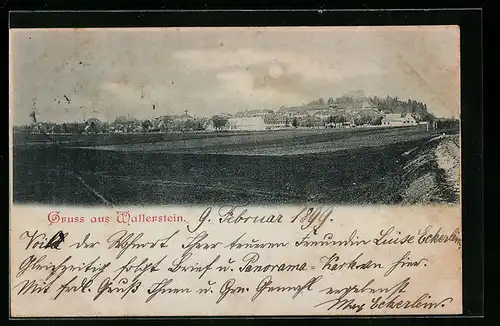 Gruss aus Wallerstein. 9. Februar 1899.
der Wohnort Ihrer teueren Freundin Luise Eckerlin
Gleichzeitig folgt Brief u. Panorama-Karte an hier.
Mit frdl. Gruß Ihnen u. Ihrem Gemahl ergebenst
Max Eckerlin